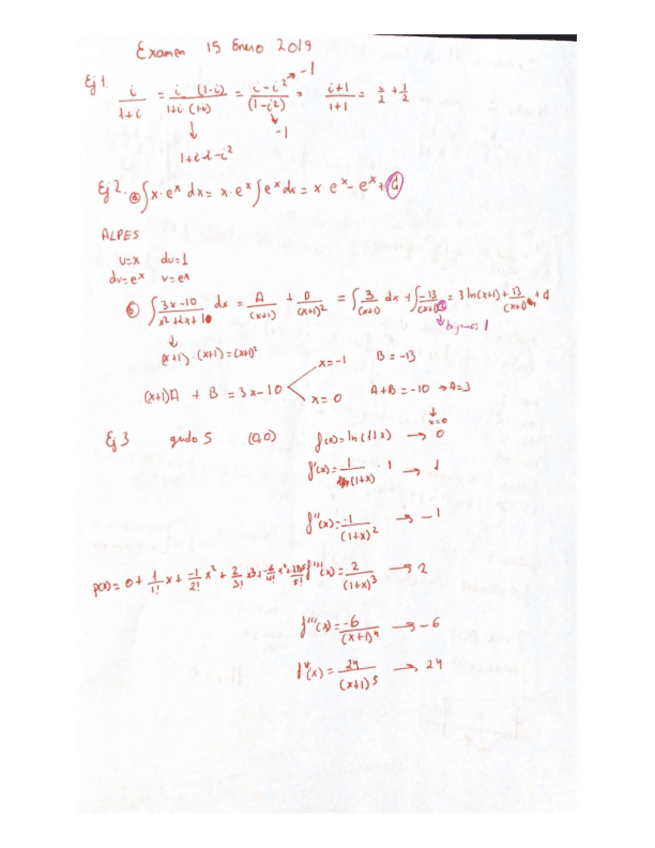 Examen 15 Enero 2019
Ej 1. i/(1+i) = i/(1+i) · (1-i)/(1-i) = (i-i²)/(1-i²) = (i+1)/(1+1) = i/2 + 1/2
→ -1
↓ ↓ -1
1+i-i-i²
Ej 2. a) ∫x·eˣ dx = x·eˣ ∫eˣ dx = x·eˣ - eˣ +
ALPES
u=x du=1
dv=eˣ v=eˣ
b) ∫(3x-10)/(x²+2x+1) dx = A/(x+1) + B/(x+1)² = ∫3/(x+1) dx + ∫-13/(x+1) = 3 ln(x+1) + 13/(x+1) +
↓ ↓ 1
(x+1)·(x+1) = (x+1)²
x=-1 B=-13
(x+1)A + B = 3x-10
x=0 A+B=-10 → A=3
Ej 3 grado 5 (0,0) f(x)=ln(1+x) → 0
↓ x=0
f'(x)= 1/(1+x) · 1 → 1
f''(x)= -1/(1+x)² → -1
p(x)= 0 + 1/1! x + -1/2! x² + 2/3! x³ + -6/4! x⁴ + f'''(x)= 2/(1+x)³ → 2
f''''(x)= -6/(x+1)⁴ → -6
fᵛ(x)= 24/(x+1)5 → 24